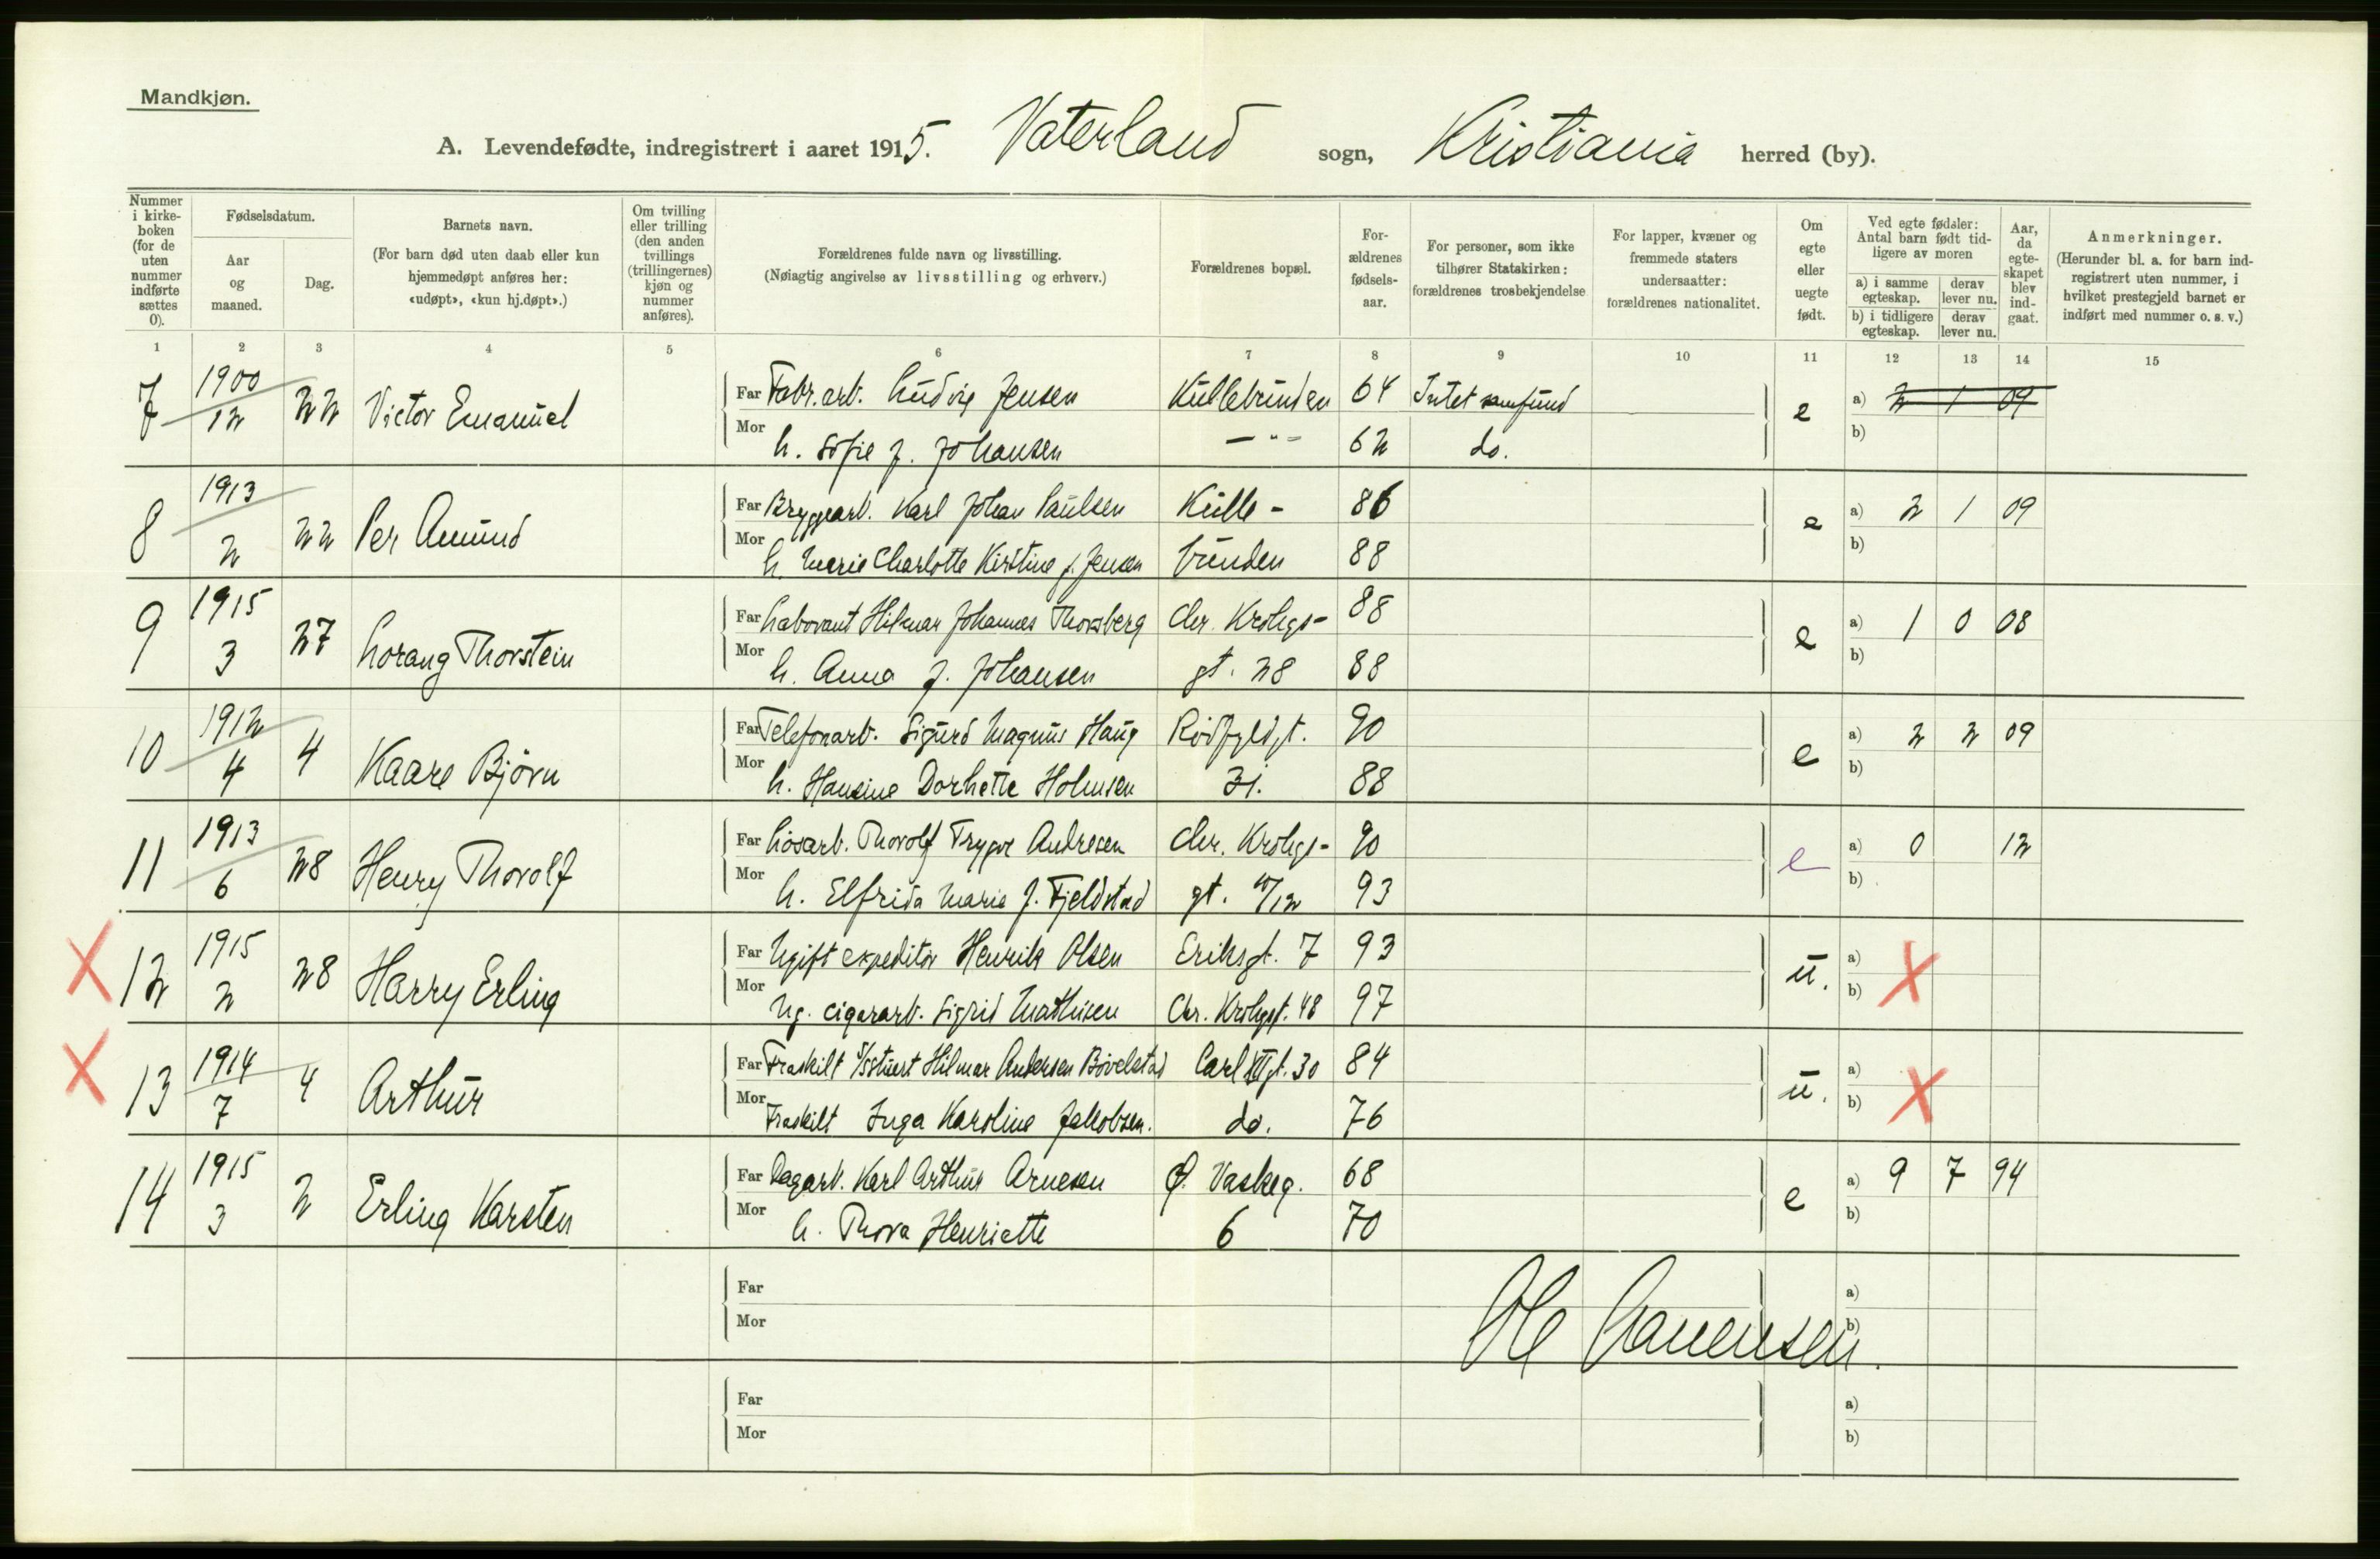 Mandkjøn.
A. Levendefødte, indregistrert i aaret 1915. Vaterland sogn, Kristiania herred (by).
Nummer i kirkeboken (for de uten nummer indførte sættes 0).
Fødselsdatum.
Aar og maaned.
Dag.
Barnets navn.
(For barn død uten daab eller kun hjemmedøpt anføres her: «udøpt», «kun hj.døpt».)
Om tvilling eller trilling (den anden tvillings (trillingernes) kjøn og nummer anføres).
Forældrenes fulde navn og livsstilling.
(Nøiagtig angivelse av livsstilling og erhverv.)
Forældrenes bopæl.
Forældrenes fødselsaar.
For personer, som ikke tilhører Statskirken: forældrenes trosbekjendelse
For lapper, kvæner og fremmede staters undersaatter: forældrenes nationalitet.
Om egte eller uegte født.
Ved egte fødsler: Antal barn født tidligere av moren
a) i samme egteskap.
derav lever nu.
b) i tidligere egteskap.
derav lever nu.
Aar, da egteskapet blev indgaat.
Anmerkninger.
(Herunder bl. a. for barn indregistrert uten nummer, i hvilket prestegjeld barnet er indført med nummer o. s. v.)
1 2 3 4 5 6 7 8 9 10 11 12 13 14 15
7 1900 12 22 Victor Emanuel
Far Fabr.arb. Ludvig Jensen Kullebunden 64 Intet samfund e a) 2 1 09
Mor h. Sofie f. Johansen — " — 62 do. b)
8 1913 2 22 Per Amund
Far Bryggearb. Karl Johan Paulsen Kulle- 86 e a) 2 1 09
Mor h. Marie Charlotte Kirstine f. Jensen bunden 88 b)
9 1915 3 27 Lorang Thorstein
Far Laborant Hilmar Johannes Thorsberg Chr. Krohgs- 88 e a) 1 0 08
Mor h. Anna f. Johansen gt. 28 88 b)
10 1912 4 4 Kaare Bjørn
Far Telefonarb. Sigurd Magnus Haug Rødfyldgt. 90 e a) 2 2 09
Mor h. Hansine Dorhette Holmsen 31. 88 b)
11 1913 6 28 Henry Thorolf
Far Løsarb. Thorolf Trygve Andresen Chr. Krohgs- 90 e a) 0 12
Mor h. Elfrida Marie f. Fjeldstad gt. 93 b)
12 1915 2 28 Harry Erling
Far Ugift expeditør Henrik Olsen Eriksgt. 7 93 u. a)
Mor Ug. cigararb. Sigrid Mathisen Chr. Krohgsgt. 48 97 b)
13 1914 7 4 Arthur
Far Fraskilt Hilmar Andersen Bøvelstad Carl XII gt. 30 84 u. a)
Mor Fraskilt Inga Karoline Jakobsen. do. 76 b)
14 1915 3 2 Erling Karsten
Far Dagarb. Karl Arthur Arnesen Ø. Vaskeg. 68 e a) 9 7 94
Mor h. Thora Henriette 6 70 b)
Far a)
Mor b)
Ole
Far a)
Mor b)